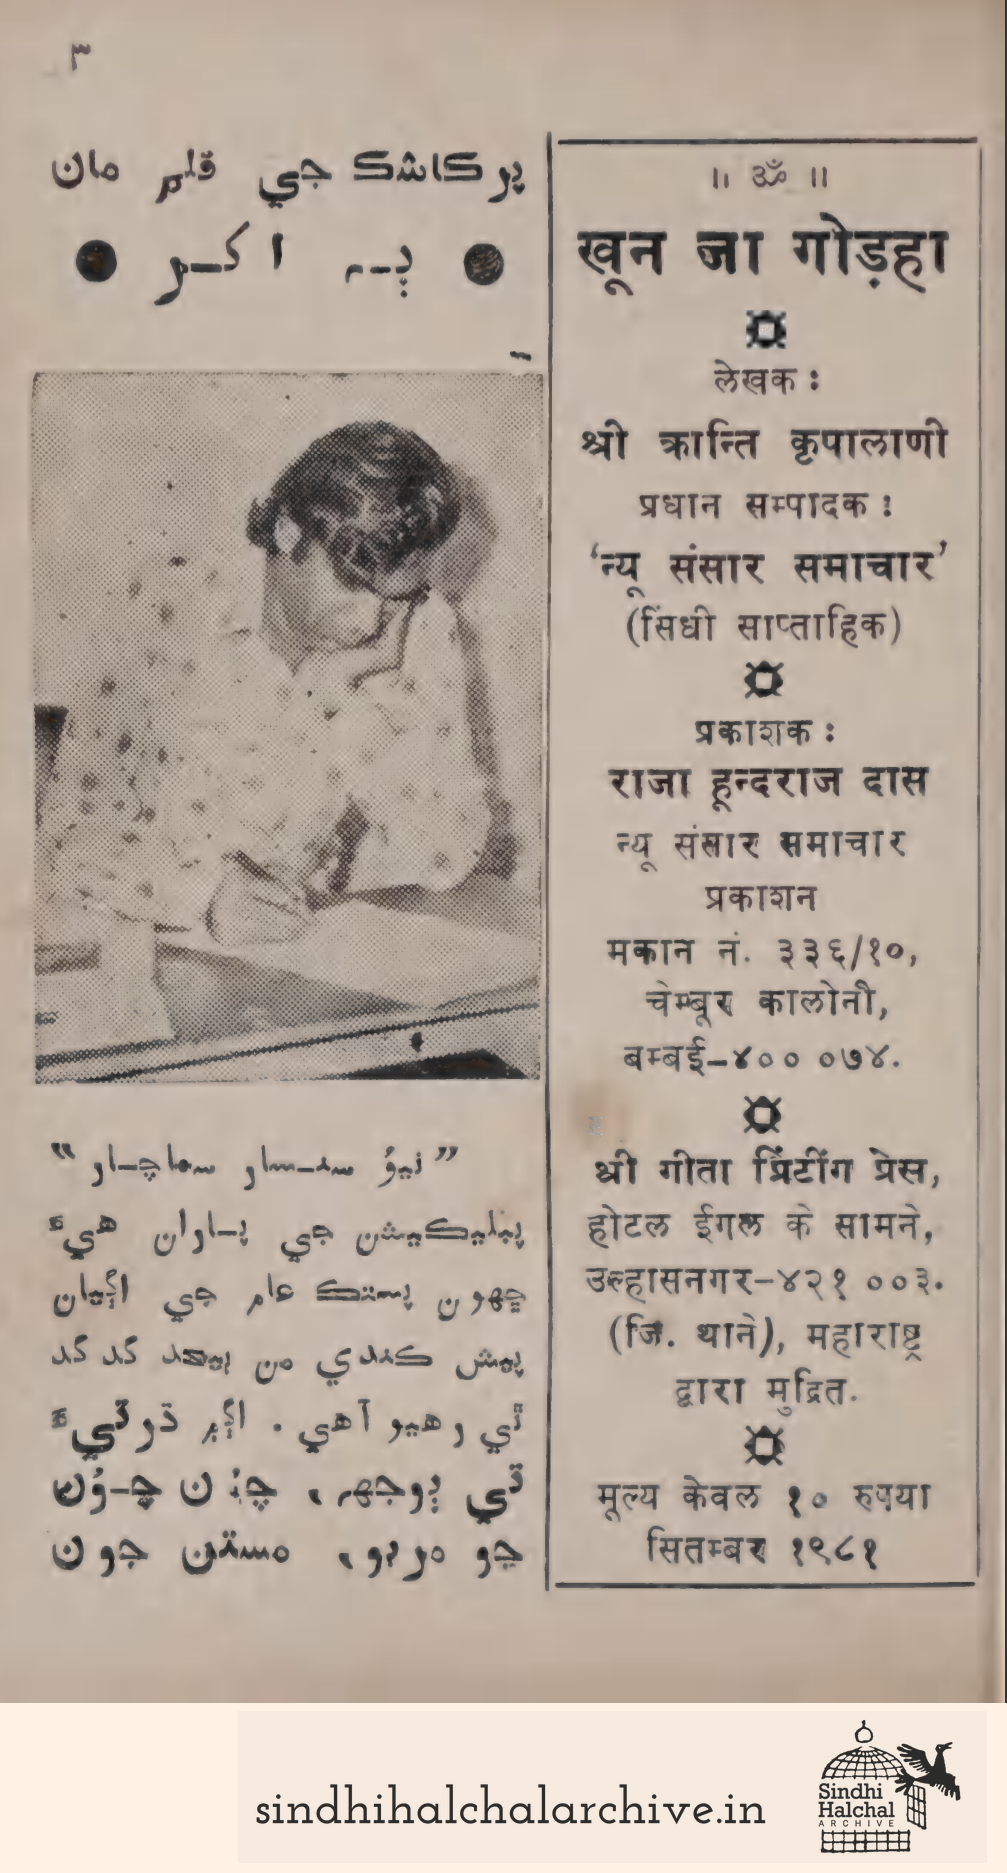 ٣
پرڪاشڪ جي قلم مان
● ٻہ اکر ●
”نيؤ سنسار سماچار“
پبليڪيشن جي پاران هيءَ
ڇهون پستڪ عام جي اڳيان
پيش ڪندي من بيحد گد گد
ٿي رهيو آهي. اڳر ڌرتيءَ
تي ٻوجھه، چڻن چؤن
جو مربو، مستن جون
॥ ॐ ॥
खून जा गोड़हा
लेखक :
श्री क्रान्ति कृपालाणी
प्रधान सम्पादक :
‘न्यू संसार समाचार’
(सिंधी साप्ताहिक)
प्रकाशक :
राजा हून्दराज दास
न्यू संसार समाचार
प्रकाशन
मकान नं. ३३६/१०,
चेम्बूर कालोनी,
बम्बई–४०० ०७४.
श्री गीता प्रिंटींग प्रेस,
होटल ईगल के सामने,
उल्हासनगर–४२१ ००३.
(जि. थाने), महाराष्ट्र
द्वारा मुद्रित.
मूल्य केवल १० रुपया
सितम्बर १९८१
sindhihalchalarchive.in
Sindhi
Halchal
ARCHIVE